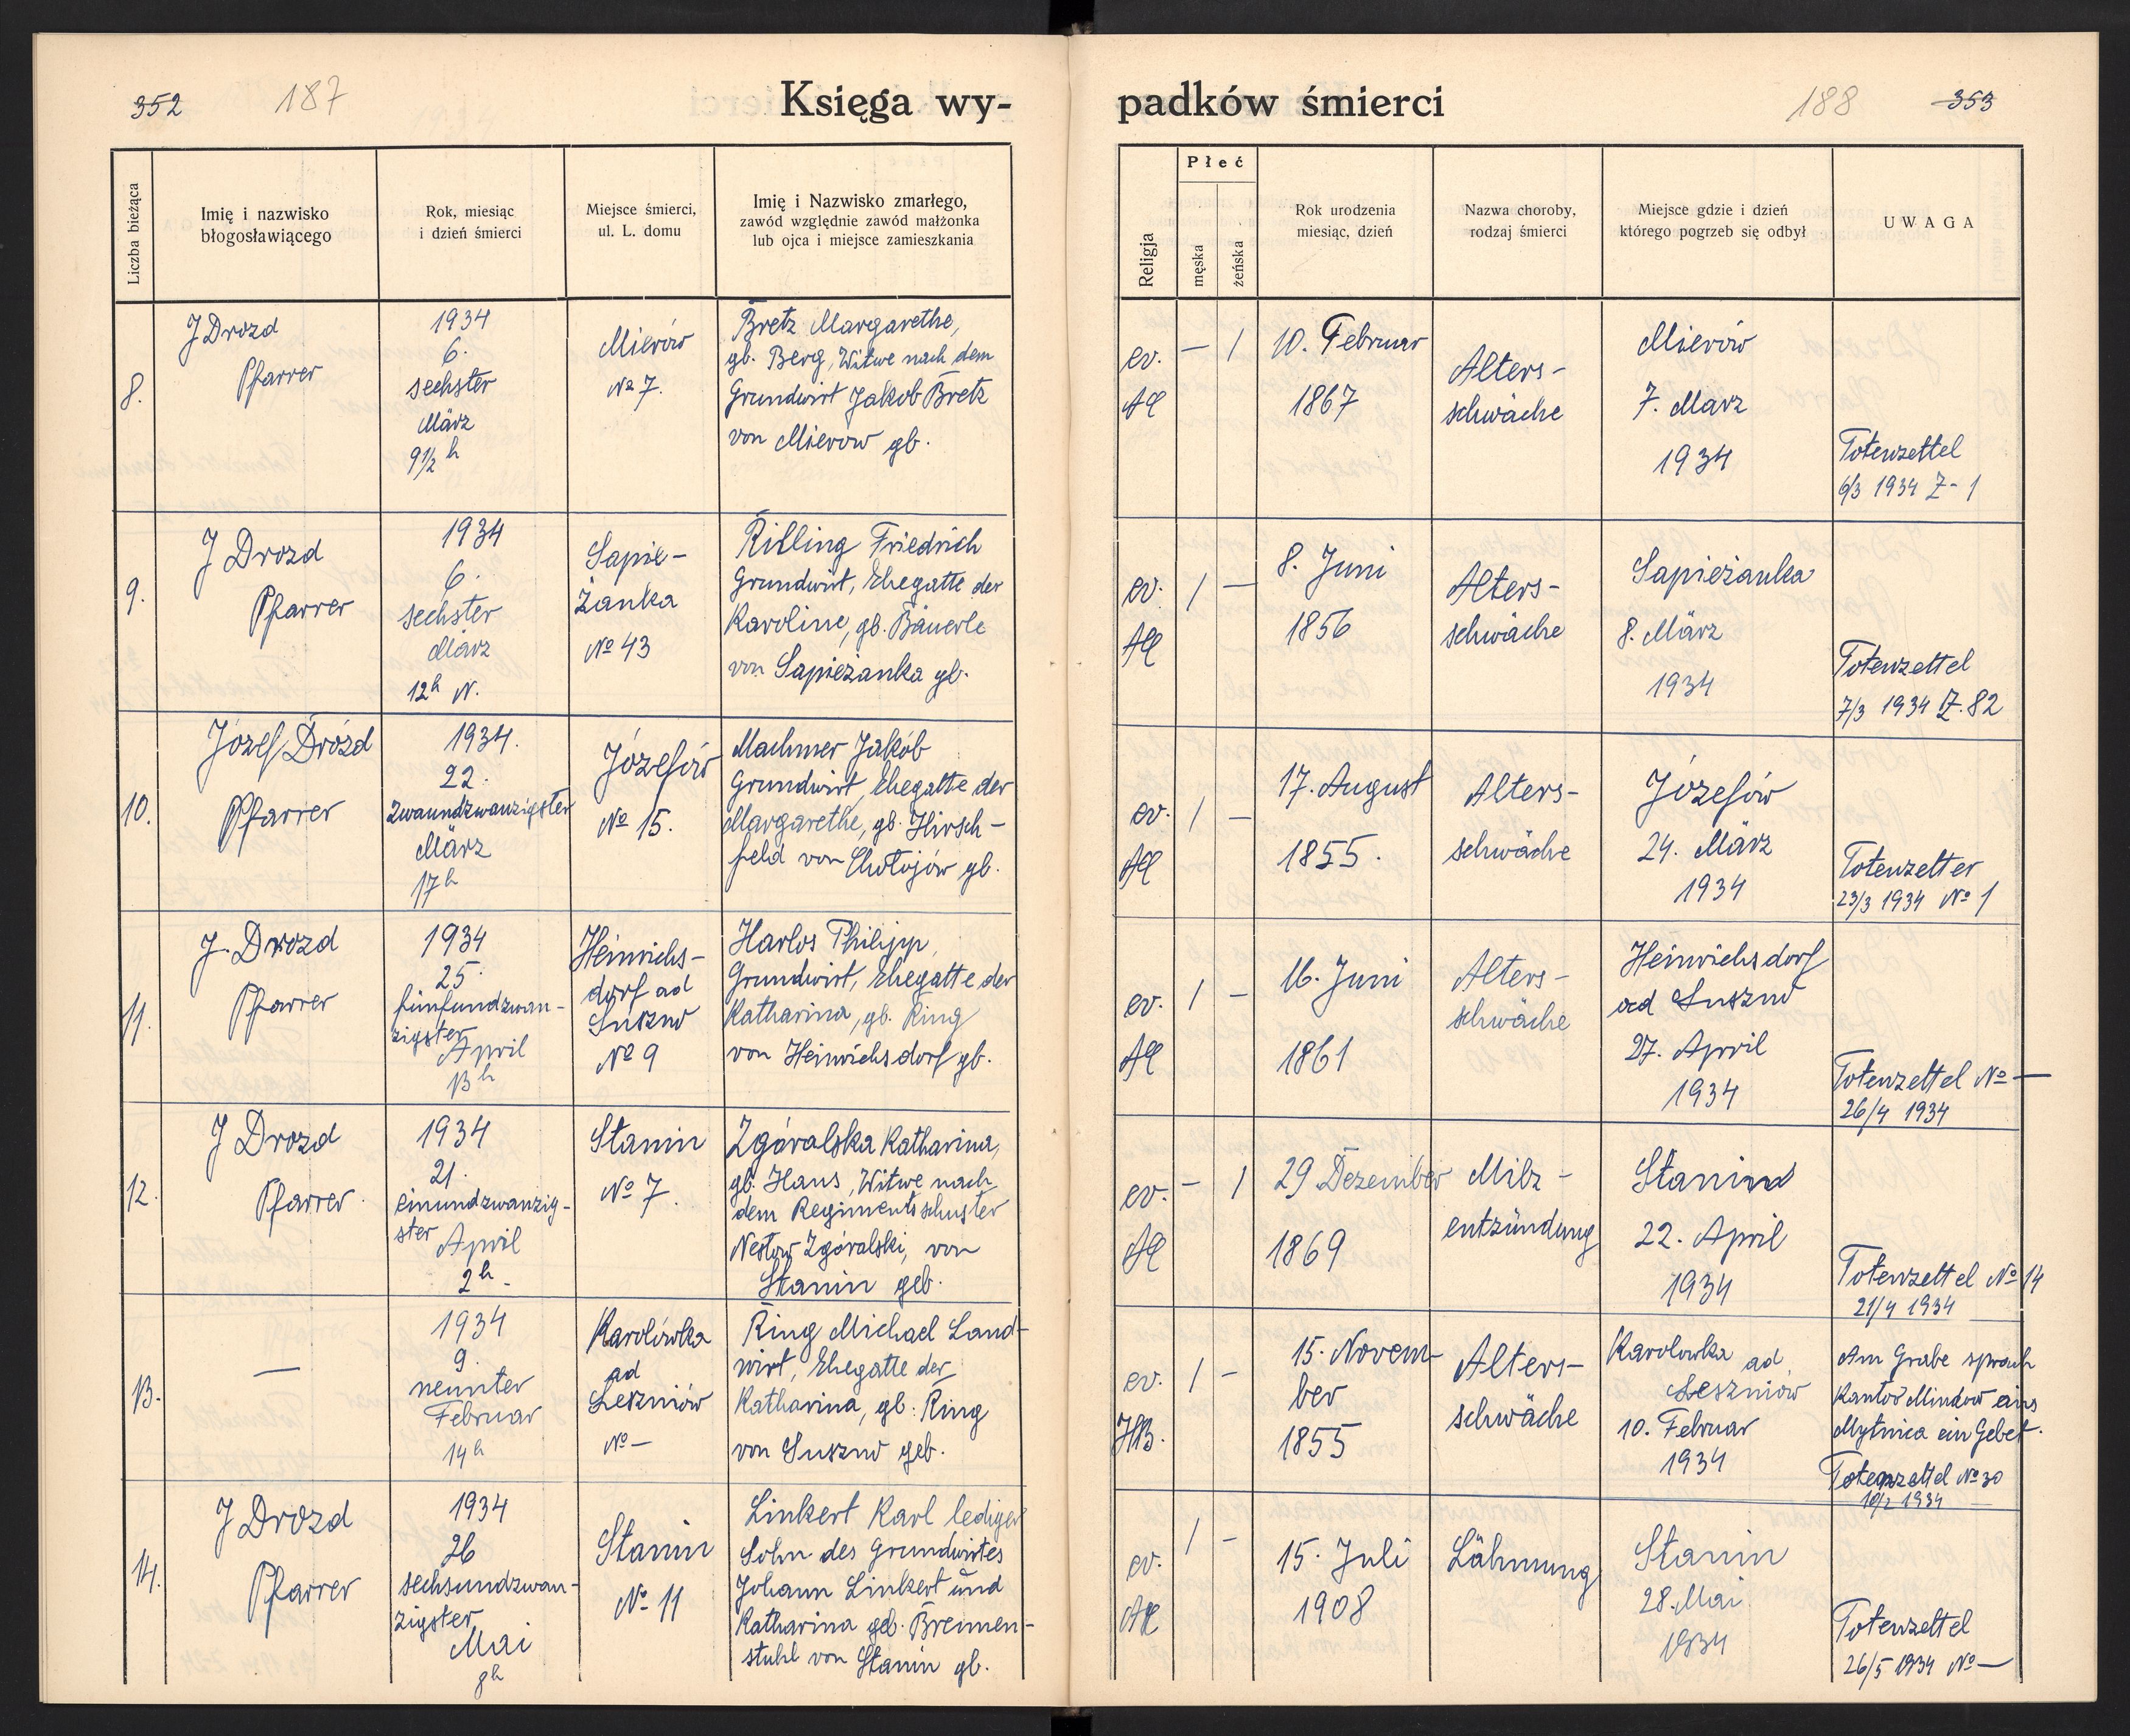 352
187
Księga wy-
Liczba bieżąca
Imię i nazwisko
błogosławiącego
Rok, miesiąc
i dzień śmierci
Miejsce śmierci,
ul. L. domu
Imię i Nazwisko zmarłego,
zawód względnie zawód małżonka
lub ojca i miejsce zamieszkania
8.
J Drozd
Pfarrer
1934
6.
sechster
März
9½ h
Mierów
No 7.
Bretz Margarethe,
gb. Berg, Witwe nach dem
Grundwirt Jakob Bretz
von Mierow gb.
9.
J Drozd
Pfarrer
1934
6.
sechster
März
12h N.
Sapie-
żanka
No 43
Rilling Friedrich
Grundwirt, Ehegatte der
Karoline, gb. Bäuerle
von Sapieżanka gb.
10.
Józef Drózd
Pfarrer
1934.
22.
zwaundzwanzigster
März
17h
Józefów
No 15.
Machmer Jakób
Grundwirt, Ehegatte der
Margarethe, gb. Hirsch-
feld von Chołojów gb.
11.
J. Drozd
Pfarrer
1934
25.
fünfundzwan-
zigster
April
13h
Heinrichs-
dorf ad
Suszno
No 9
Harlos Philipp,
Grundwirt, Ehegatte der
Katharina, gb. Ring
von Heinrichsdorf gb.
12.
J Drozd
Pfarrer.
1934
21.
einundzwanzig-
ster
April
2h-
Stanin
No 7.
Zgóralska Katharina,
gb. Haus, Witwe nach
dem Regimentsschuster
Nestor Zgóralski, von
Stanin geb.
13.
—
1934
9.
neunter
Februar
14h
Karolówka
ad
Leszniów
No —
Ring Michael Land-
wirt, Ehegatte der
Katharina, gb. Ring
von Suszno geb.
14.
J Drozd
Pfarrer
1934
26
sechsundzwan-
zigster
Mai
8h
Stanin
No 11
Linkert Karl lediger
Sohn des Grundwirtes
Johann Linkert und
Katharina geb. Bremen-
stuhl von Stanin gb.
padków śmierci
188
353
Religja
Płeć
męska
żeńska
Rok urodzenia
miesiąc, dzień
Nazwa choroby,
rodzaj śmierci
Miejsce gdzie i dzień
którego pogrzeb się odbył
UWAGA
ev.
AC
— 1
10. Februar
1867
Alters-
schwäche
Mierów
7. März
1934
Totenzettel
6/3 1934 Z- 1
ev.
AC
1 —
8. Juni
1856
Alters-
schwäche
Sapieżanka
8. März
1934
Totenzettel
7/3 1934 Z. 82
ev.
AC
1 —
17. August
1855.
Alters-
schwäche
Józefów
24. März
1934
Totenzetter
23/3 1934 No 1
ev.
AC
1 –
16. Juni
1861
Alters-
schwäche
Heinrichsdorf
ad Suszno
27. April
1934
Totenzettel No —
26/4 1934
ev.
AC
– 1
29 Dezember
1869
Milz-
entzündung
Stanin
22. April
1934
Totenzettel No 14
21/4 1934
ev.
HB.
1 –
15. Novem-
ber
1855
Alters-
schwäche
Karolowka ad
Leszniów
10. Februar
1934
Am Grabe sprach
Kantor Mindow aus
Mytnica ein Gebet.
Totenzettel No 30
10/2 1934
ev.
AC
1 –
15. Juli
1908
Lähmung
Stanin
28. Mai
1934
Totenzettel
26/5 1934 No —